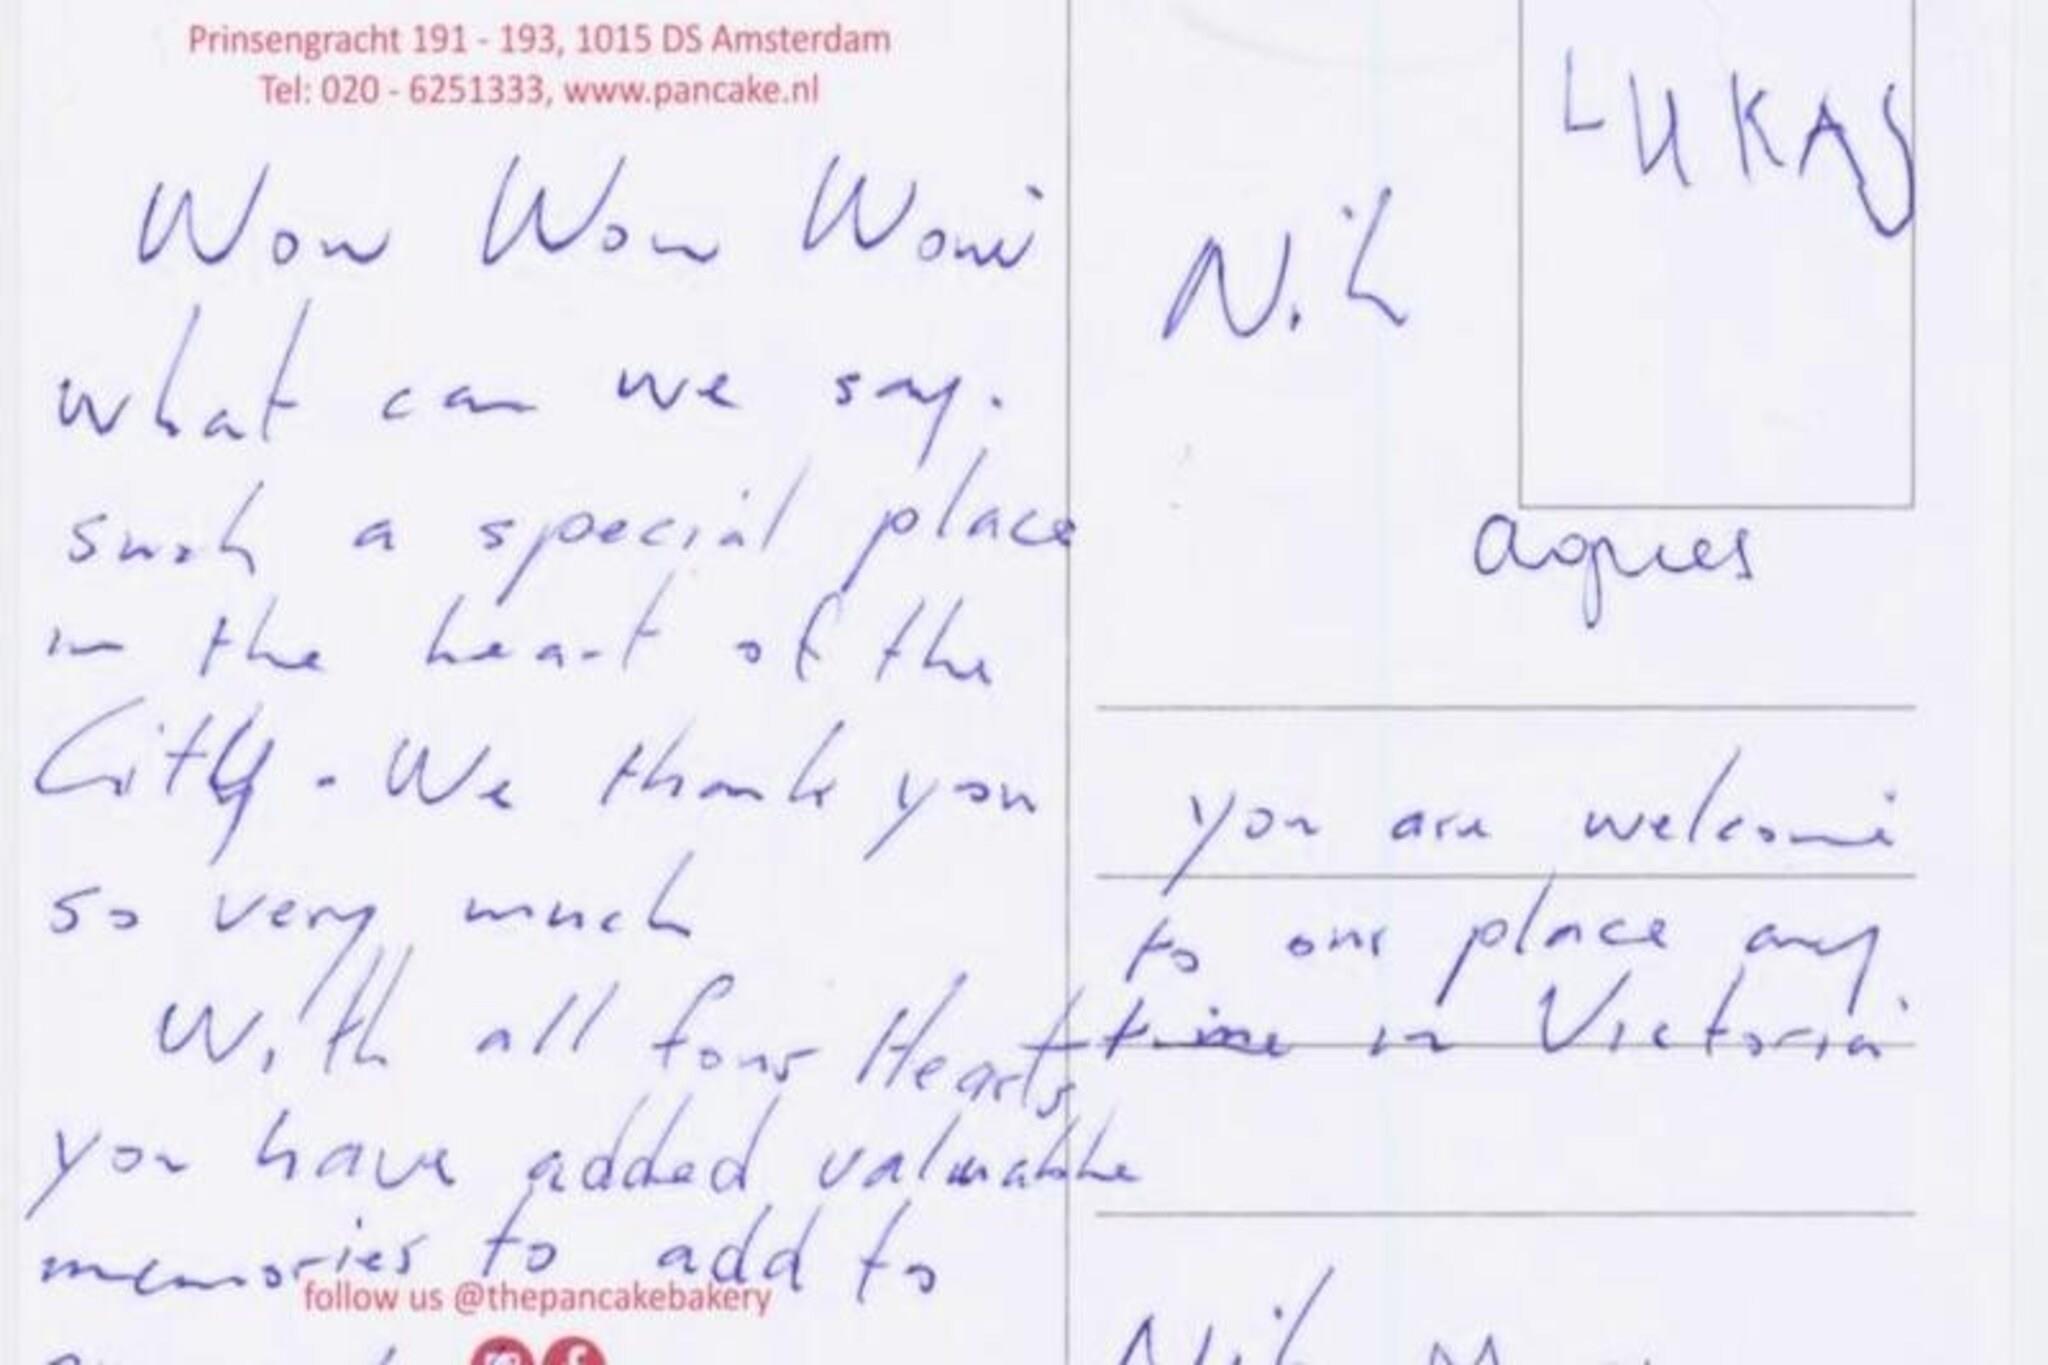 Prinsengracht 191 - 193, 1015 DS Amsterdam
Tel: 020 - 6251333, www.pancake.nl
Wow Wow Wow
what can we say.
such a special place
in the heart of the
City. We thank you
so very much
With all four Hearts
you have added valuable
memories to add to
follow us @thepancakebakery
LUKAS
Nik
agnes
you are welcome
to our place any
time in Victoria
Nik